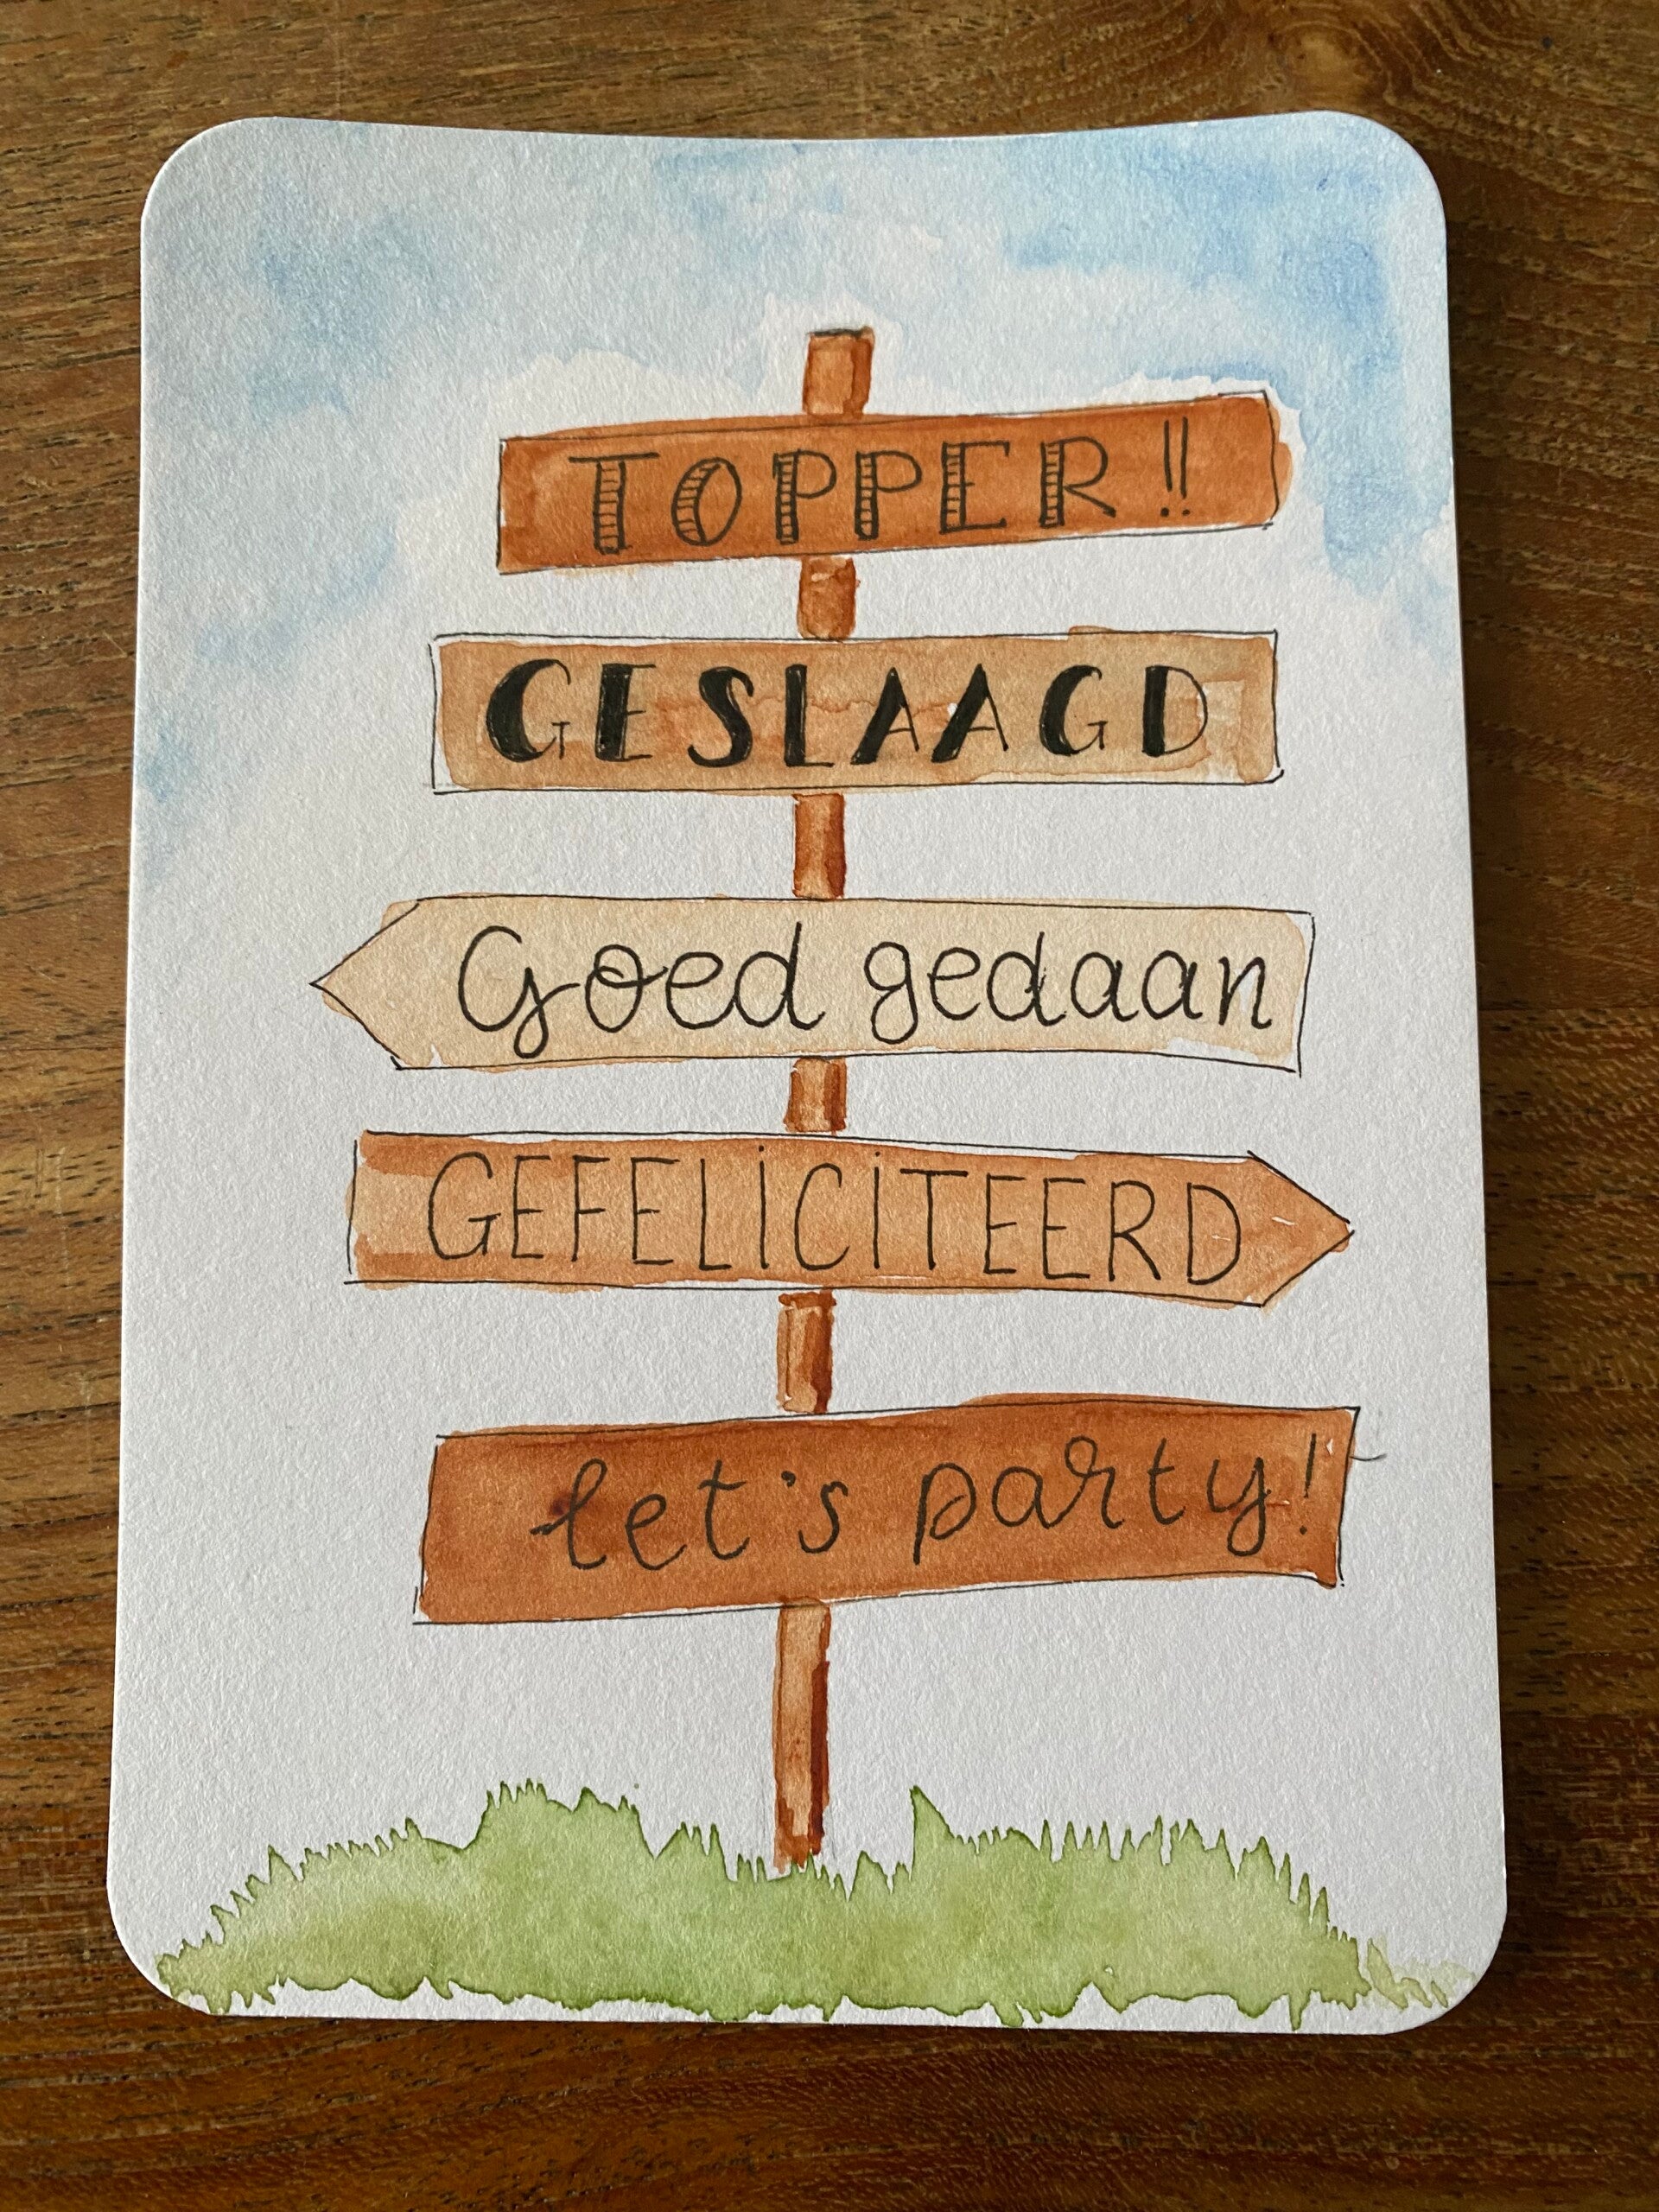 TOPPER!!
GESLAAGD
Goed gedaan
GEFELiCiTEERD
let's party!